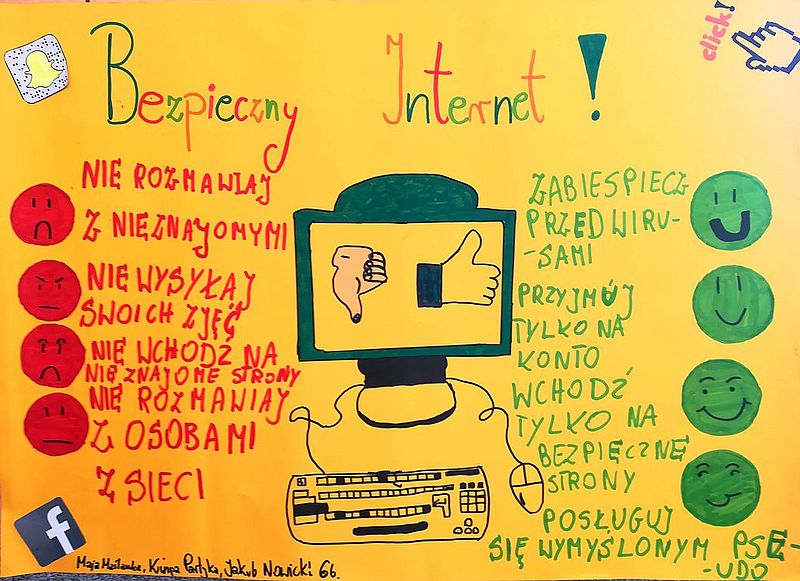 Bezpieczny Internet!
click!
NIE ROZMAWIAJ
Z NIEZNAJOMYMI
NIE WYSYŁAJ
SWOICH ZJĘĆ
NIE WCHODŹ NA
NIE ZNAJOME STRONY
NIE ROZMAWIAJ
Z OSOBAMI
Z SIECI
ZABIESPIECZ
PRZED WIRU-
-SAMI
PRZYJMUJ
TYLKO NA
KONTO
WCHODŹ
TYLKO NA
BEZPIECZNE
STRONY
POSŁUGUJ
SIĘ WYMYŚLONYM PSE-
-UDO
f
Maja, Jakub Nowicki 6b.